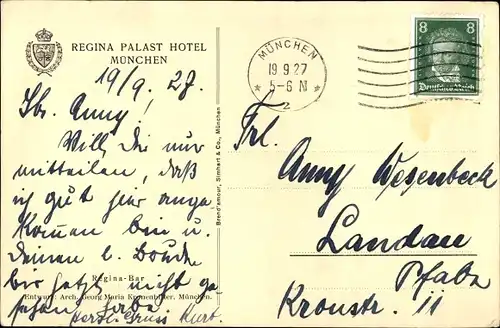 REGINA PALAST HOTEL
MÜNCHEN
19/9. 27.
Lbr. Anny!
Will Dir nur
mitteilen, daß
ich gut hier ange
kommen bin u.
Deinen l.
bis jetzt nicht ge
sehen habe
Regina-Bar
Entwurf: Arch. Georg Maria München.
herzl. Gruss Kurt.
Brend'amour, Simhart & Co., München
MÜNCHEN
19.9.27
5-6 N
2
8 8
Deutsches Reich
Frl.
Anny Wesenbeck
Landau
Pfalz
Kronstr. 11